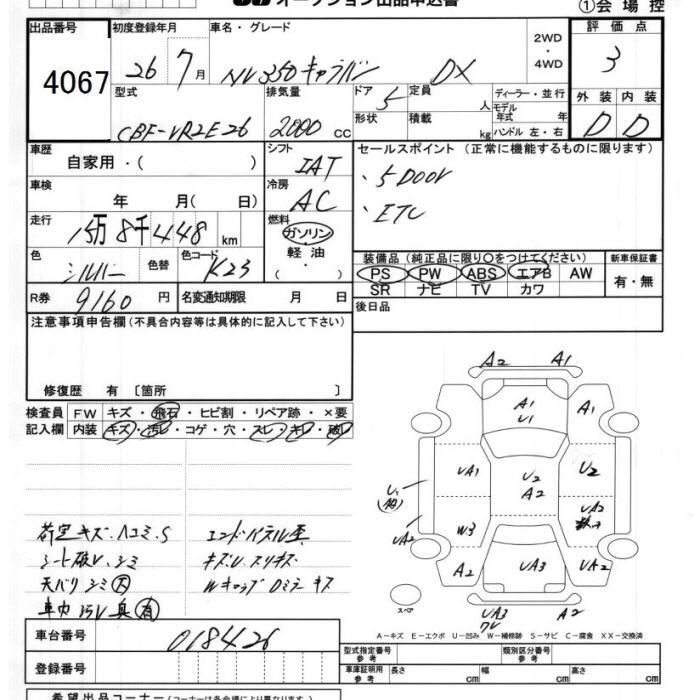 オークション出品申込書
①会場控
出品番号 初度登録年月 車名・グレード 2WD・4WD 評価点
4067 26 7月 NV350キャラバン DX 3
型式 排気量 ドア 定員 人 ディーラー・並行 外装 内装
CBF-VR2E26 2000 cc 5 形状 積載 kg モデル年式 年 ハンドル 左・右 D D
車歴 自家用・( ) シフト IAT セールスポイント (正常に機能するものに限ります)
車検 年 月( 日) 冷房 AC ・5 Door
走行 15万8千448 km 燃料 ガソリン・軽油・( ) ・ETC
色 シルバー 色替 色コード K23 装備品 (純正品に限り○をつけてください) 新車保証書
PS PW ABS エアB AW 有・無
SR ナビ TV カワ
R券 9160 円 名変通知期限 月 日 後日品
注意事項申告欄 (不具合内容等は具体的に記入して下さい)
修復歴 有 〔箇所 〕
検査員 FW キズ・飛石・ヒビ割・リペア跡・×要
記入欄 内装 キズ・汚レ・コゲ・穴・スレ・キレ・破レ
荷室キズ.ハコミ.S エンドパネル歪
シート破レ.シミ キズU.スリキズ
天バリ シミ大 Wキャップ Dミラーキズ
車内汚レ 臭有
A2 A1
A1 U1 A1
UA1 U2 A2 U2
U1 UA2
UA2 W3
A2 UA3 UA2
スペア UA3 ワレ A2
A-キズ E-エクボ U-凹み W-補修跡 S-サビ C-腐食 XX-交換済
車台番号 018426
登録番号
型式指定番号 参考 類別区分番号 参考
車庫証明 参考 長さ cm 幅 cm 高さ cm
希望出品コーナー (コーナーは各会場により異なります)